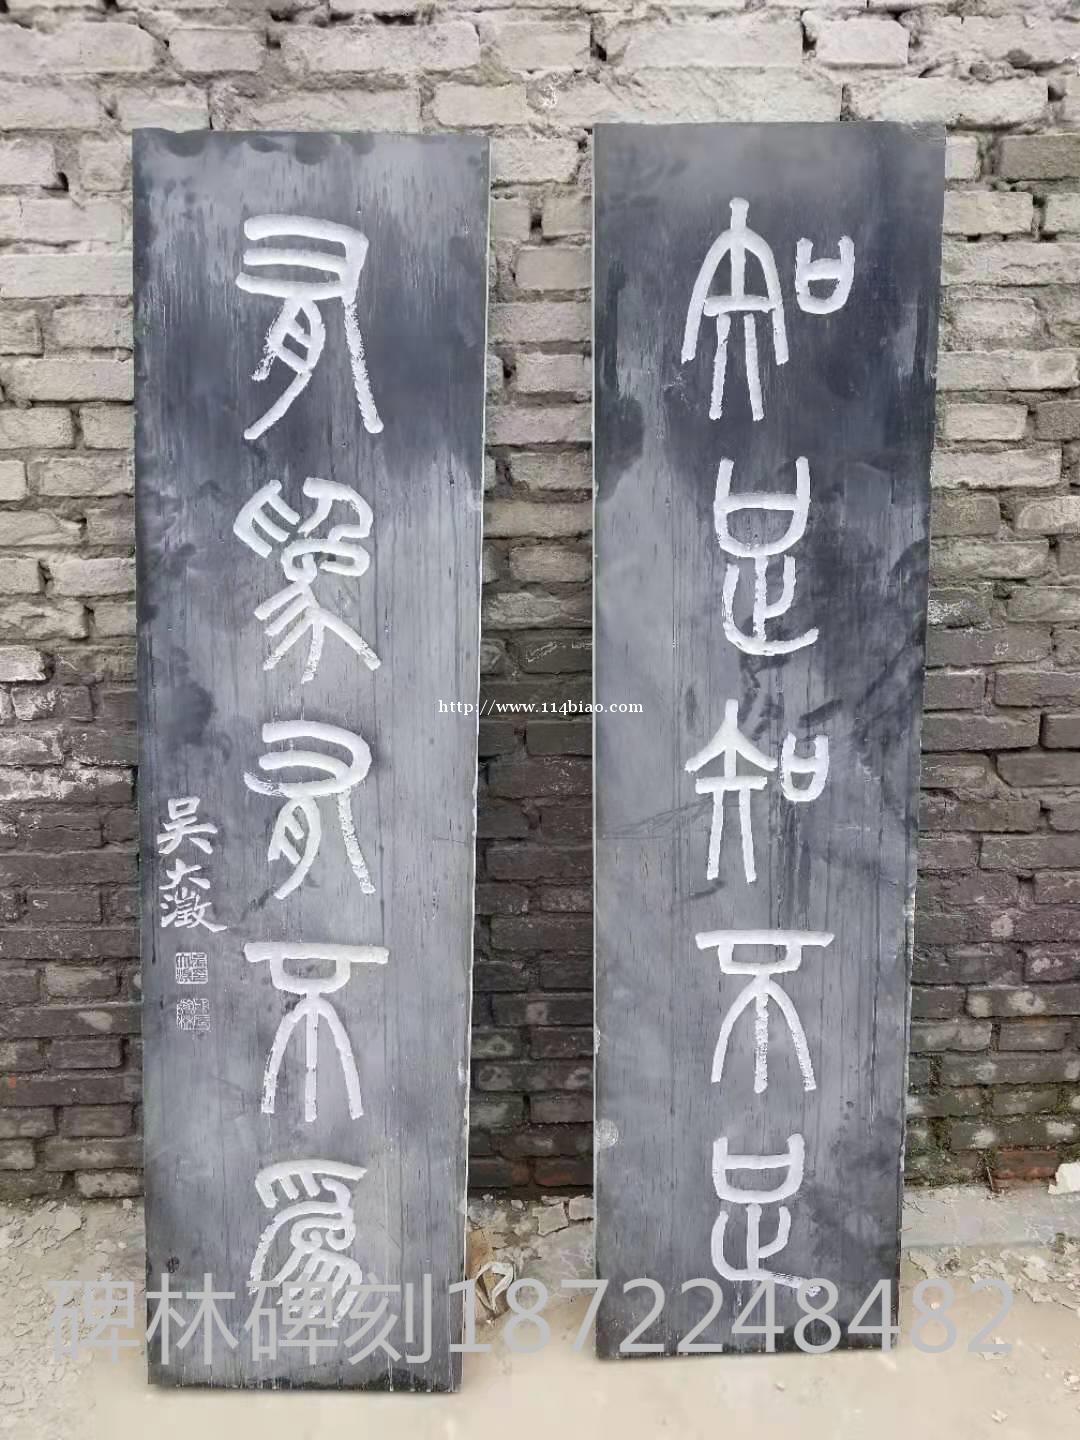 知足知不足
有為有不為
吳大澂
http://www.114biao.com
碑林碑刻18722248482